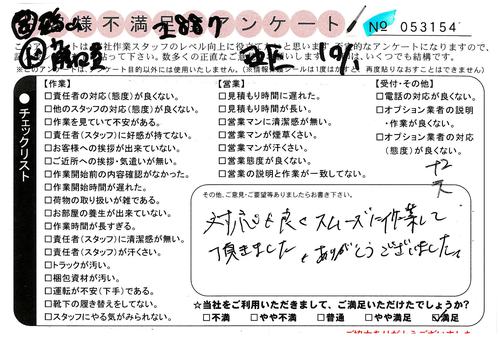 様不満足 アンケート
No 053154
社作業スタッフのレベル向上に役立て
※このアンケートは、アンケート目的以外には使用いたしません。
チェックリスト
【作業】
□責任者の対応(態度)が良くない。
□他のスタッフの対応(態度)が良くない。
□作業を見ていて不安がある。
□責任者(スタッフ)に好感が持てない。
□お客様への挨拶が出来ていない。
□ご近所への挨拶・気遣いが無い。
□作業開始前の内容確認がなかった。
□作業開始時間が遅れた。
□荷物の取り扱いが雑である。
□お部屋の養生が出来ていない。
□作業時間が長すぎる。
□責任者(スタッフ)に清潔感が無い。
□責任者(スタッフ)が汗くさい。
□トラックが汚い。
□梱包資材が汚い。
□運転が不安(下手)である。
□靴下の履き替えをしてない。
□スタッフにやる気がみられない。
【営業】
□見積もり時間に遅れた。
□見積もり時間が長い。
□営業マンに清潔感が無い。
□営業マンが煙草くさい。
□営業マンが汗くさい。
□営業態度が良くない。
□営業の説明と作業が一致してない。
【受付・その他】
□電話の対応が良くない。
□オプション業者の説明
・作業が良くない。
□オプション業者の対応
(態度)が良くない。
その他、ご意見・ご要望等ありましたらお書き下さい。
対応も良くスムーズに作業して
頂きました。ありがとうございました。
☆当社をご利用いただきまして、ご満足いただけたでしょうか?
□不満 □やや不満 □普通 □やや満足 ☑満足